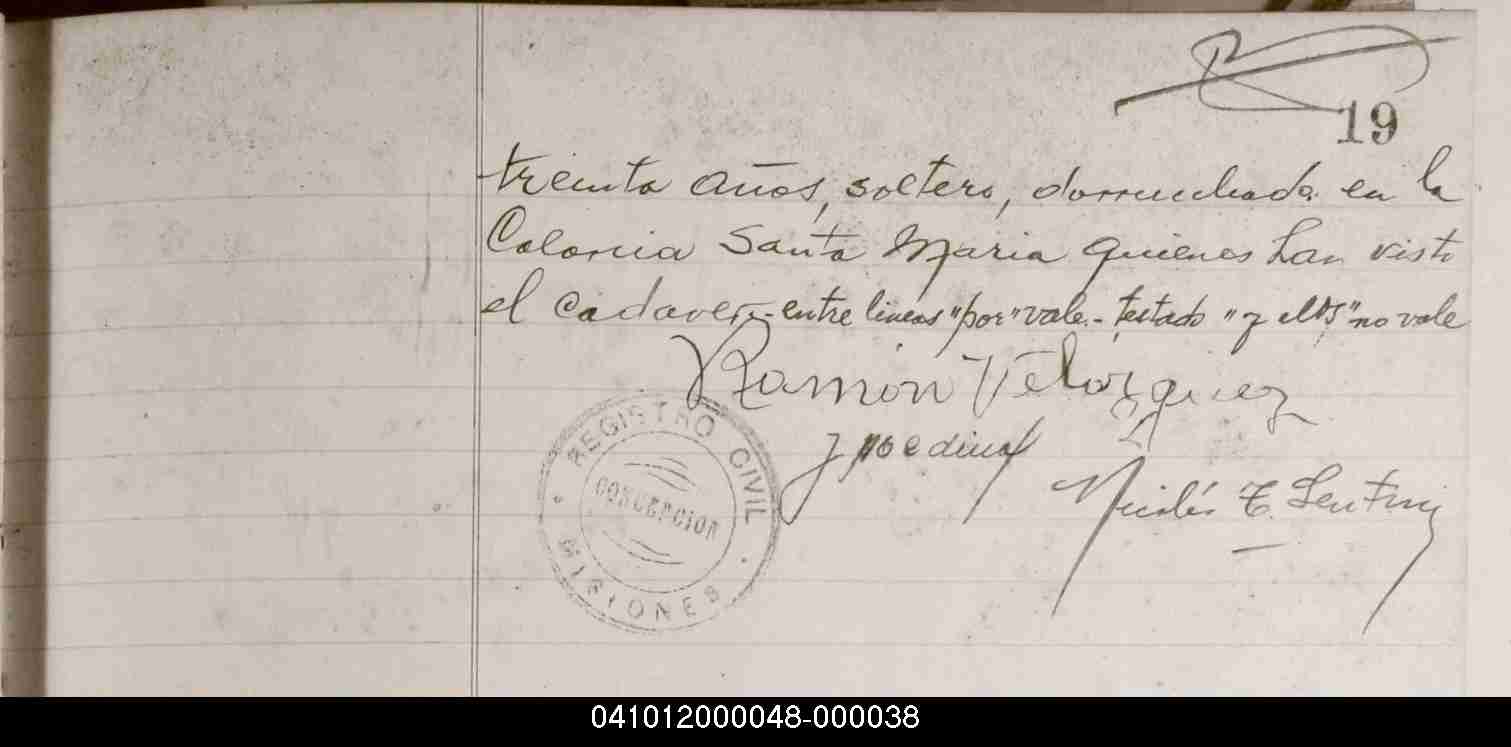 19
treinta años, soltero, domiciliado en la
Colonia Santa Maria quienes han visto
el cadaver.- entre lineas "por" vale.- testado "y el" no vale
Ramón Velazquez
J Medina
Nicolás T.
REGISTRO CIVIL
CONCEPCION
MISIONES
041012000048-000038